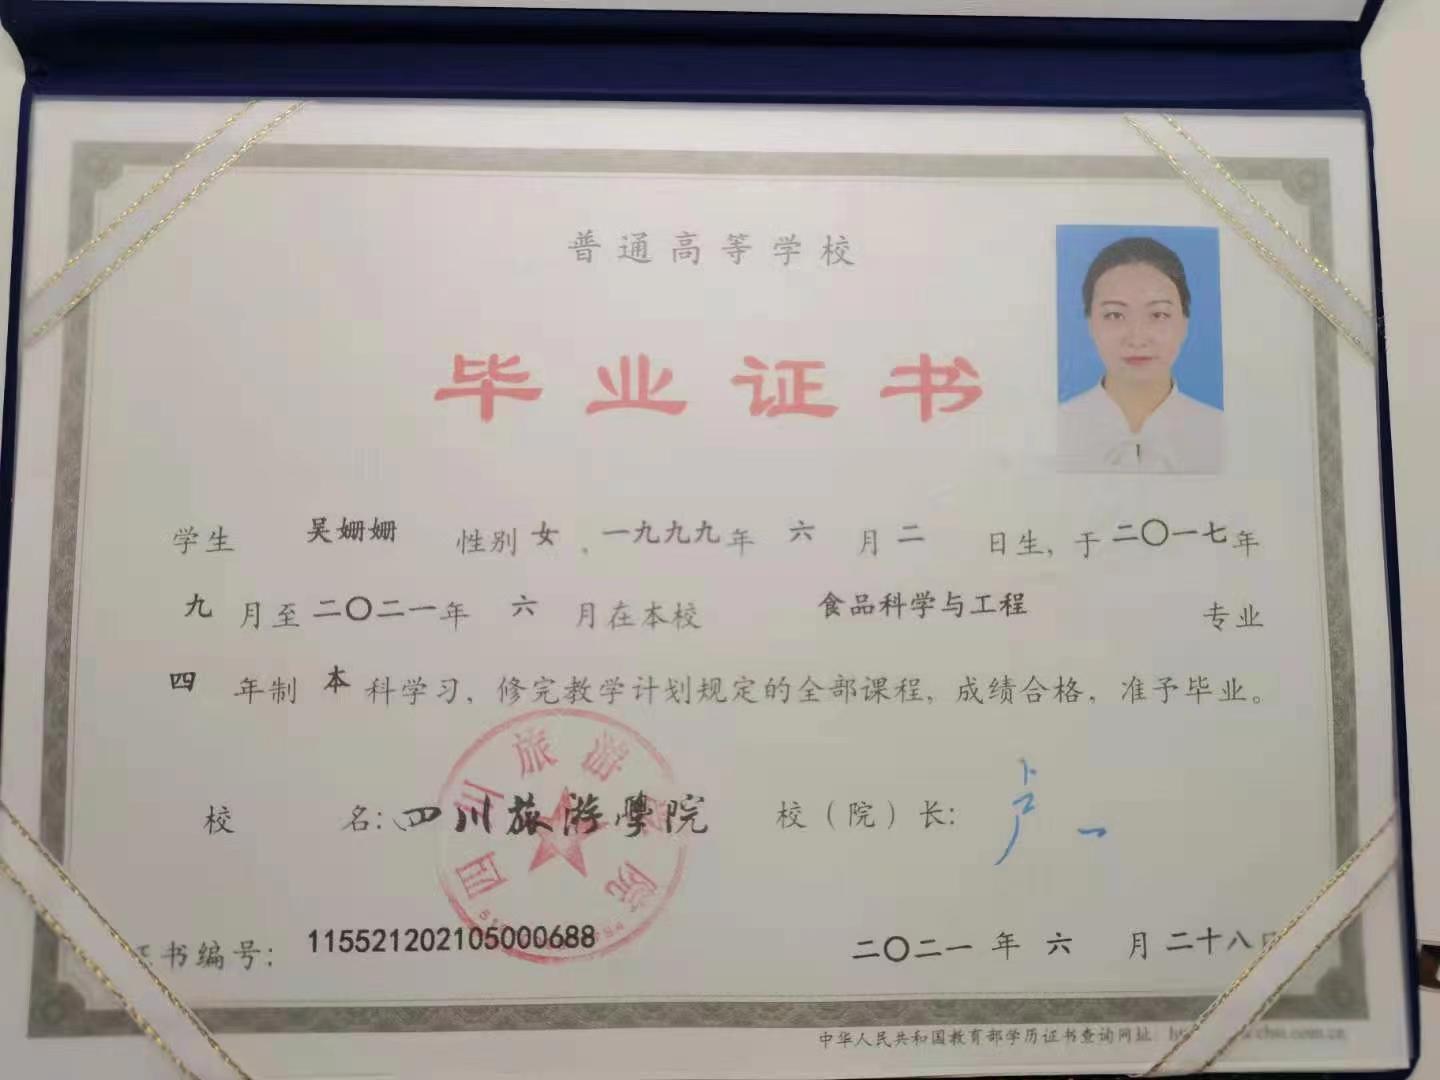 普通高等学校
毕业证书
学生 吴姗姗 性别 女 ，一九九九年 六 月 二 日生，于 二〇一七 年
九 月至 二〇二一 年 六 月在本校 食品科学与工程 专业
四 年制 本 科学习，修完教学计划规定的全部课程，成绩合格，准予毕业。
校 名：四川旅游學院 校（院）长：卢一
四川旅游学院
证书编号：115521202105000688 二〇二一 年 六 月 二十八日
中华人民共和国教育部学历证书查询网址：